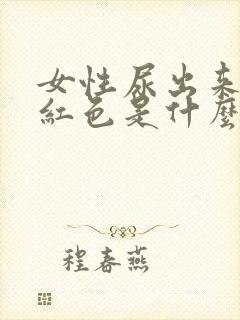 女性尿出来
紅色是什麼
程春燕